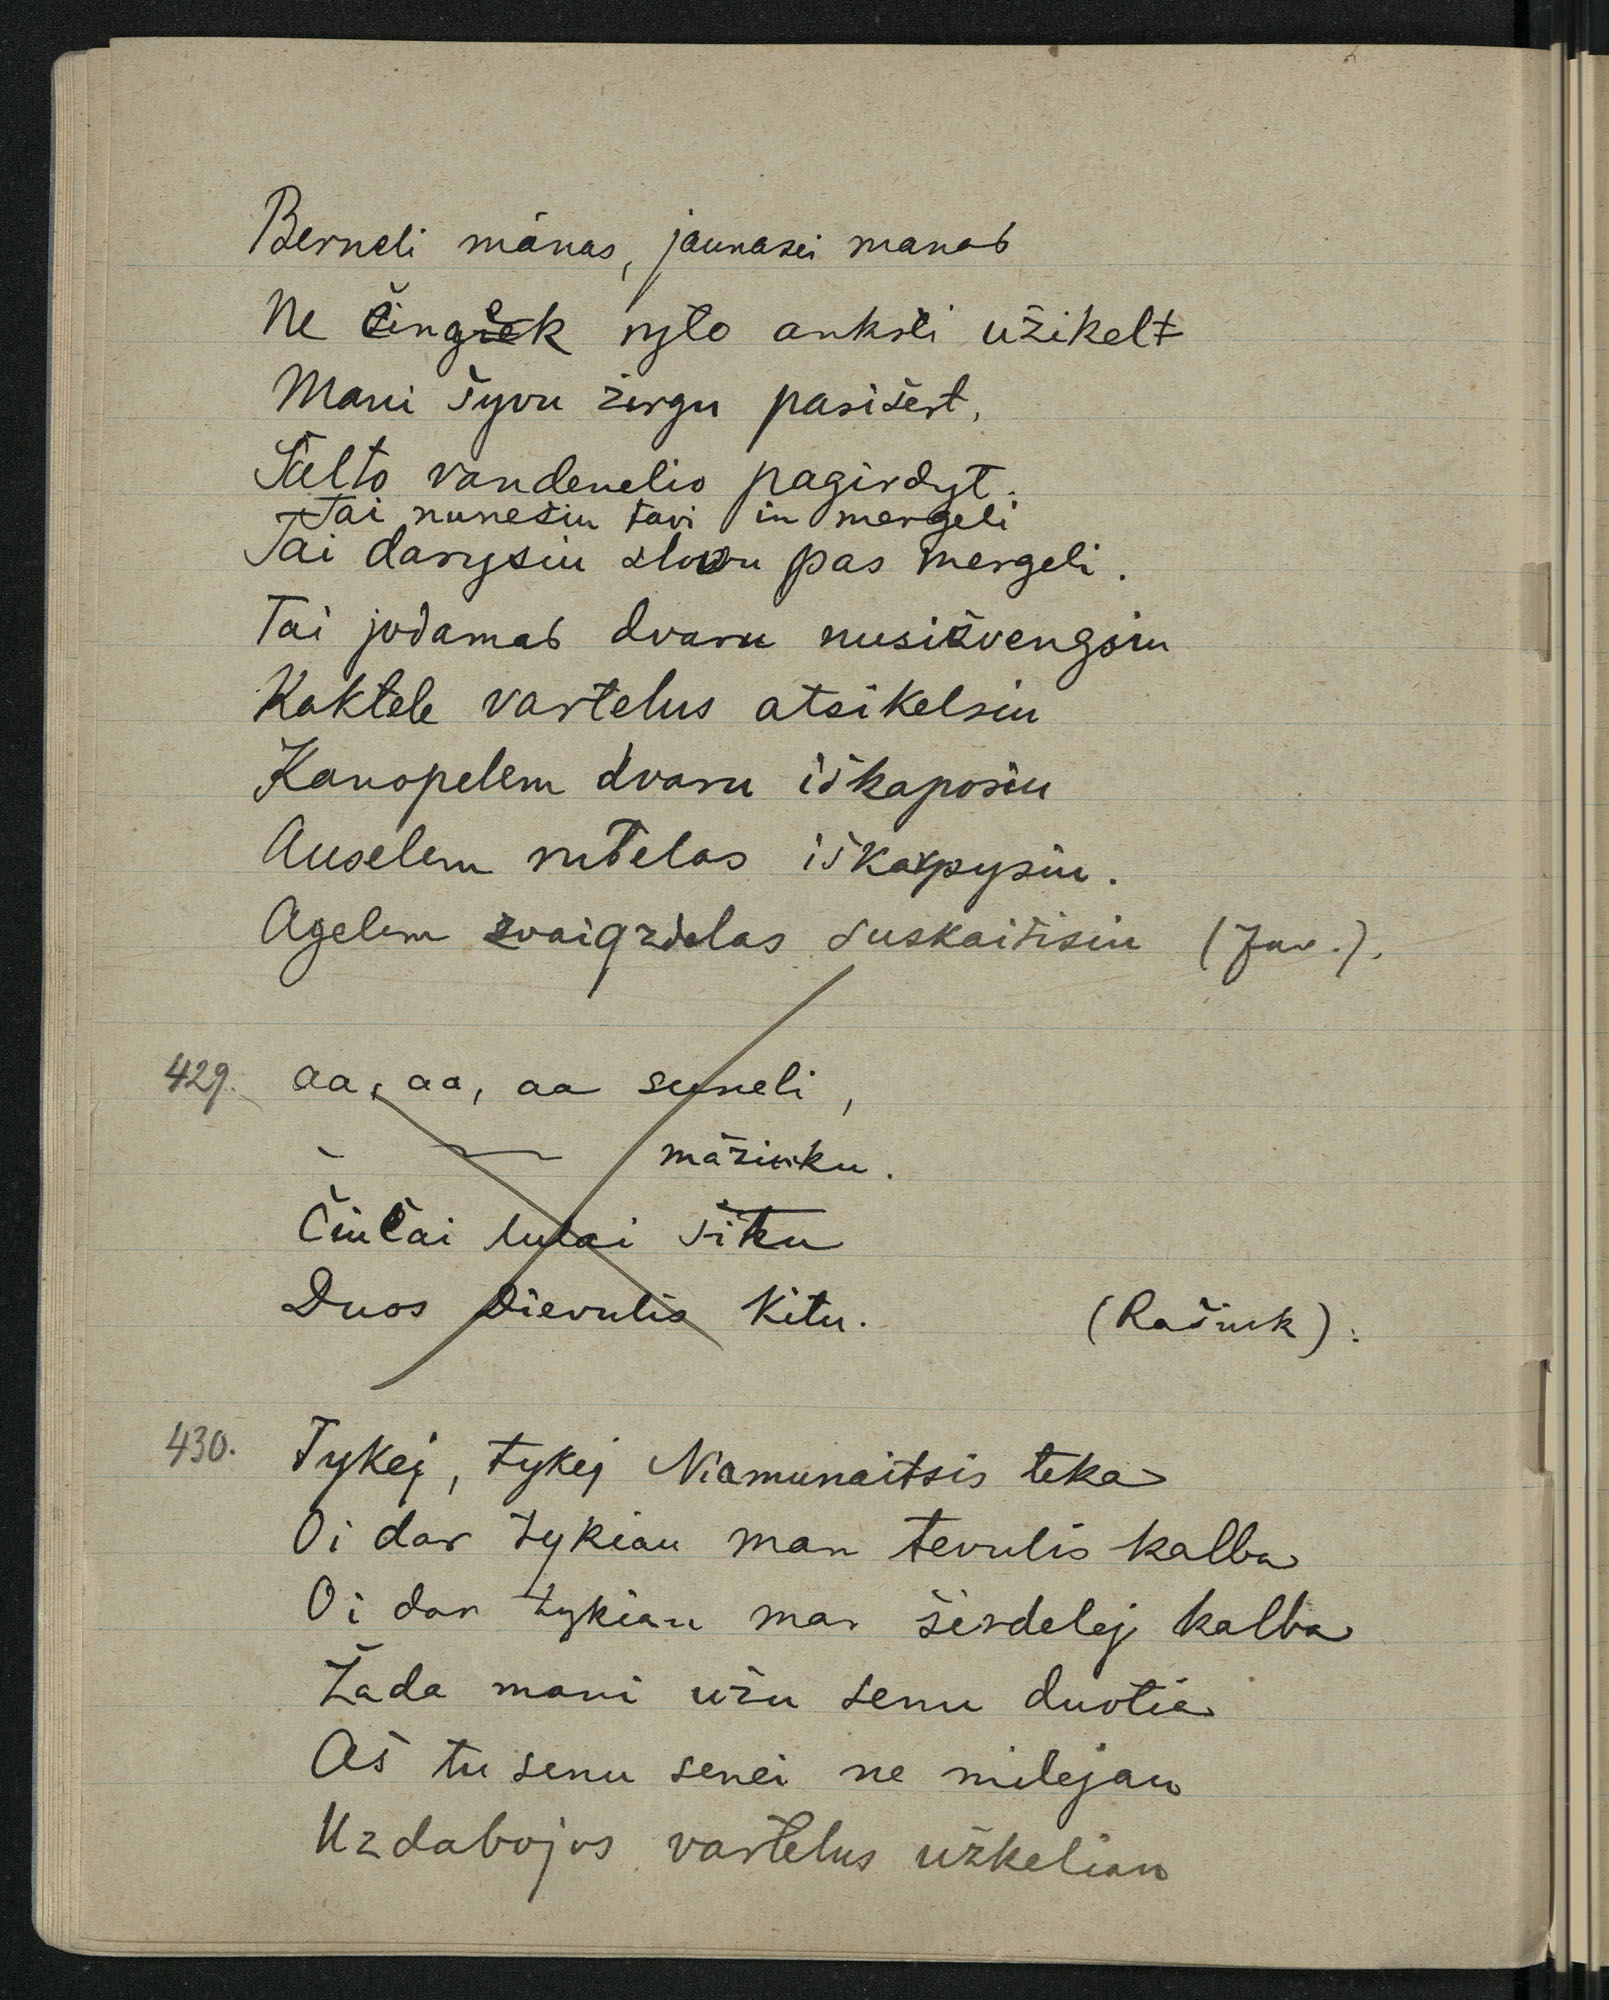 Berneli mánas, jaunasei manas
Ne tingek ryto anksti užikelt
Mani šyvu žirgu pasišert,
Šalto vandenelio pagirdyt.
Tai nunešiu tavi in mergeli
Tai darysiu slovu pas mergeli.
Tai jodamas dvaru nusižvengsiu
Kaktele vartelus atsikelsiu
Kanopelem dvaru iškaposiu
Auselem rutelas iškarpysiu.
Agelem zvaigzdelas suskaitisiu (Juo.).
429. aa, aa, aa suneli,
— mäžiuku.
Čiučai lulai šitu
Duos Dievulis kitu. (Rašiuk).
430. Tykej, tykej Niamunaitsis teka
Oi dar tykiau man tevulis kalba
Oi dar tykiau mar širdelej kalba
Žada mani užu senu duotia
Aš tu senu senei ne milejau
Uzdabojus vartelus užkeliau